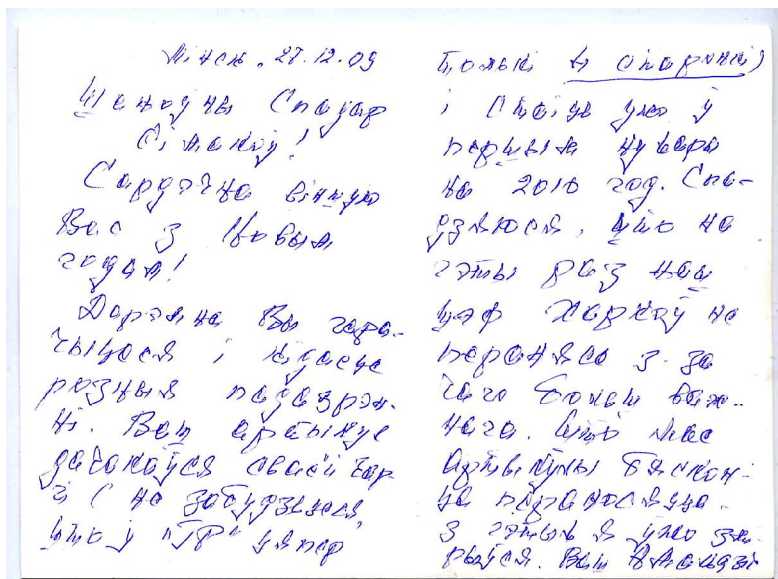 Мінск. 27.12.09
Шаноўны Спадар
Сімакоў!
Сардэчна віншую
Вас з Новым
годам!
Дарэмна Вы гара-
чыцеся і кідаеце
розныя падазрэн-
ні. Ваш артыкул
дачакаўся сваёй чар-
гі (не забудзьцеся,
што ў "ГР" цяпер
толькі 4 старонкі)
і стаіць ужо ў
першым нумары
на 2010 год. Спа-
дзяюся, што на
гэты раз наш
шэф Харкоў не
перанясе з-за
чаго больш важ-
нага. Што мае
артыкулы бяскон-
ца пераносяцца
з гэтым я ўжо змі-
рыўся. Ваш